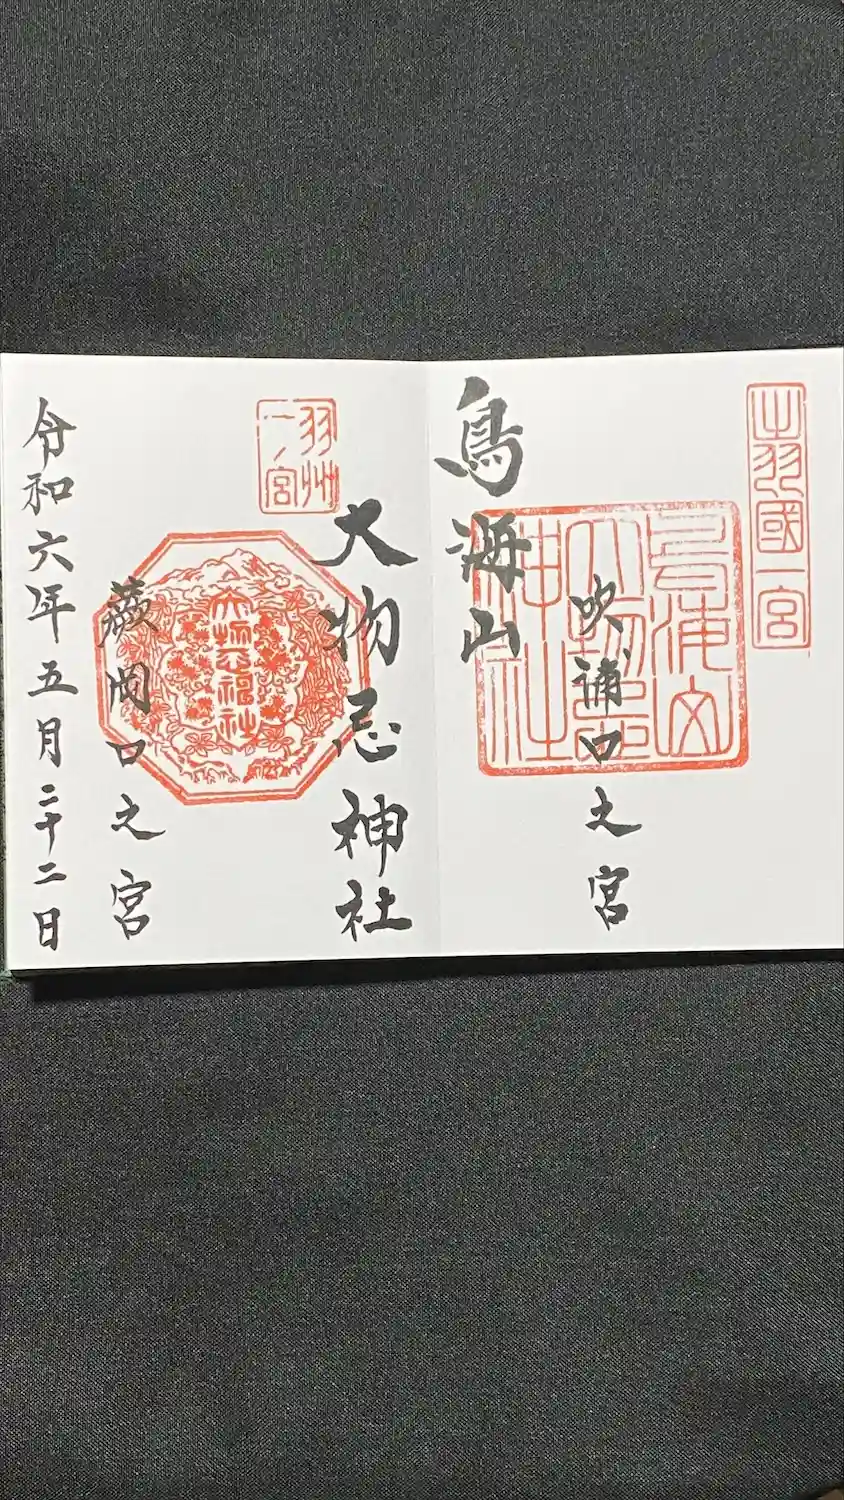 出羽國一宮
吹浦口之宮
鳥海山大物忌神社
鳥海山
大物忌神社
羽州一ノ宮
大物忌神社
蕨岡口之宮
令和六年五月二十二日